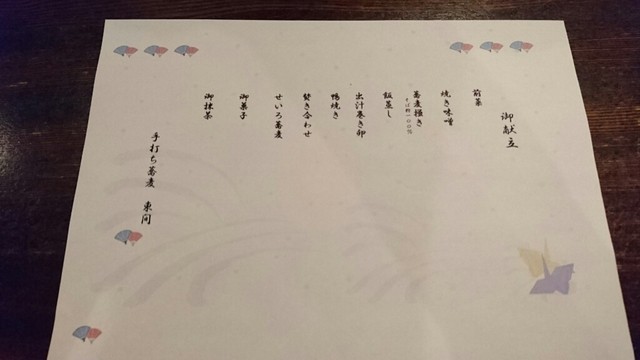 御献立
前菜
焼き味噌
蕎麦掻き
飯蒸し
出汁巻き卵
鴨焼き
焚き合わせ
せいろ蕎麦
御菓子
御抹茶
手打ち蕎麦 東間